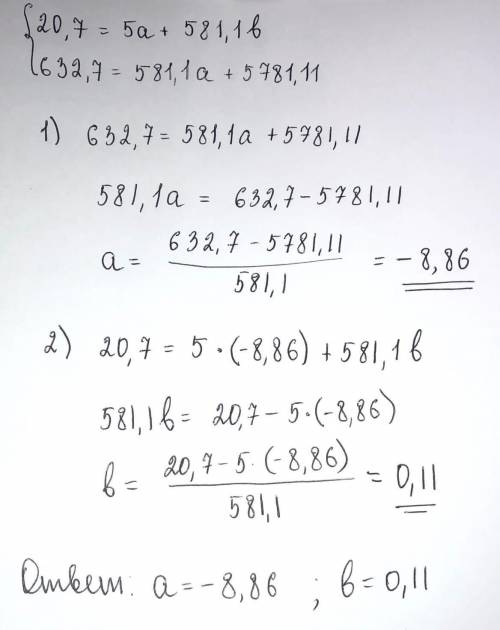 {20,7 = 5a + 581,1в
632,7 = 581,1a + 5781,11
1) 632,7 = 581,1a + 5781,11
581,1a = 632,7 - 5781,11
a = (632,7 - 5781,11) / 581,1 = -8,86
2) 20,7 = 5 · (-8,86) + 581,1в
581,1в = 20,7 - 5·(-8,86)
в = (20,7 - 5·(-8,86)) / 581,1 = 0,11
Ответ: a = -8,86 ; в = 0,11